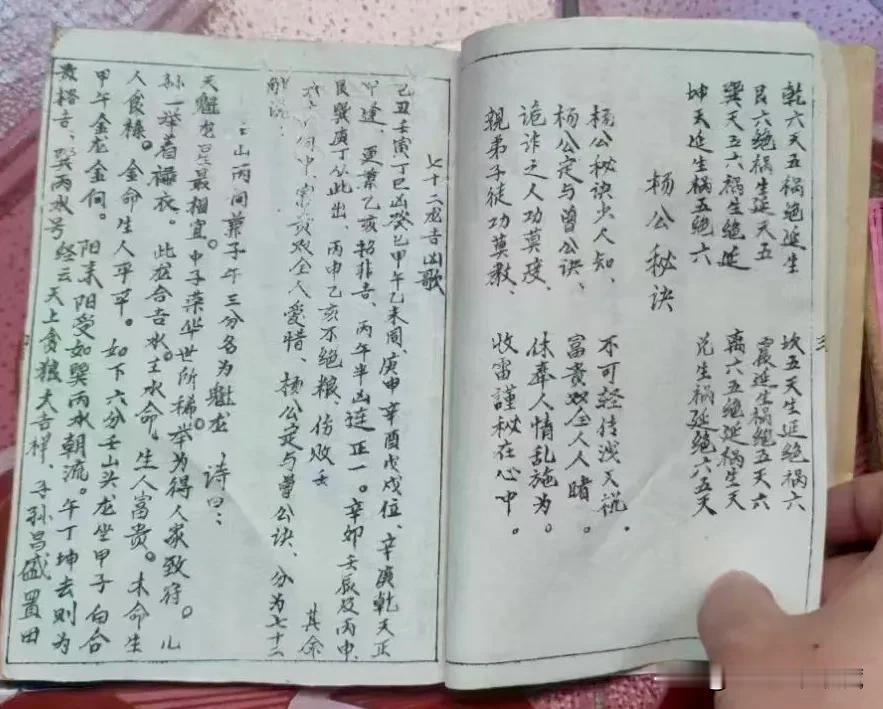 乾六天五祸绝延生 坎五天生延绝祸六
艮六绝祸生延天五 震延生祸绝五天六
巽天五六祸生绝延 离六五绝延祸生天
坤天延生祸五绝六 兑生祸延绝六五天
杨公秘诀
杨公秘诀少人知、 不可轻传浅人说．
杨公定与曾公诀、 富贵双全人人睹．
诡诈之人功莫度、 休弃人情乱施为。
亲弟子徒功莫教、 收雷谨秘在心中。
三
七十二水吉凶歌
己丑壬寅丁巳凶癸巳甲午乙未同、庚申辛酉戊戌位、辛庚乾天正
甲逢、更兼乙亥招非吉、丙午半凶连正一。辛卯壬辰及丙申、
艮巽庚丁从此出、丙申乙亥不绝粮、伤败去 其余
中富贵双全人爱惜、杨公定与曾公诀、分为七十二
解说：
壬山丙向兼子午三分名为魁龙 诗曰：
天魁龙星最相宜。中子荣华世所稀举为得人家致府。儿
孙一举着襕衣。此龙合吉水。壬水命、生人富贵。木命生
人食禄。金命生人平平。如下六分壬山头龙坐甲子向合
甲午金龙金向。阳来阳受如巽丙水朝流。午丁坤去则为
贵格吉、巽丙水号经云天上贪狼大吉祥、子孙昌盛置田